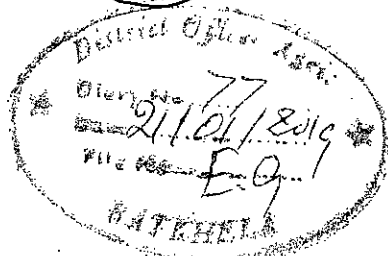 District Officer Agri:
Diary No 77
Date 21/01/2019
File No E-9
BATKHELA